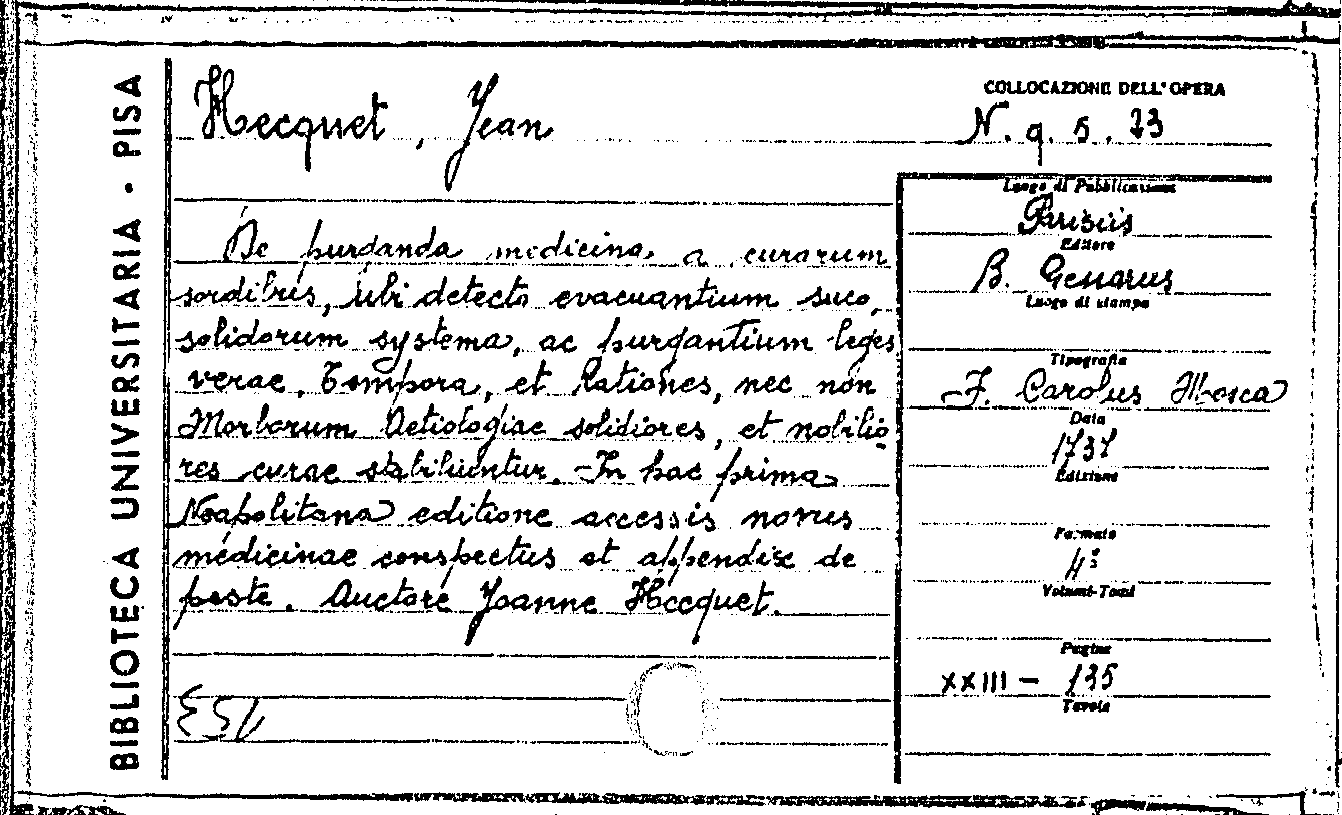 BIBLIOTECA UNIVERSITARIA · PISA
Hecquet, Jean
COLLOCAZIONE DELL'OPERA
N. q. 5. 23
De purganda medicina a curarum
sordibus, ubi detecto evacuantium suco,
solidorum systema, ac purgantium leges
verae. Tempora, et Rationes, nec non
Morborum Aetiologiae solidiores, et nobilio
res curae stabiliuntur. In hac prima
Neapolitana editione accessis novus
medicinae conspectus et appendix de
peste. Auctore Joanne Hecquet.
ESV
Luogo di Pubblicazione
Parisiis
Editore
B. Genarus
Luogo di stampa
Tipografia
F. Carolus Mosca
Data
1737
Edizione
Formato
4º
Volumi-Tomi
Pagine
XXIII - 135
Tavole